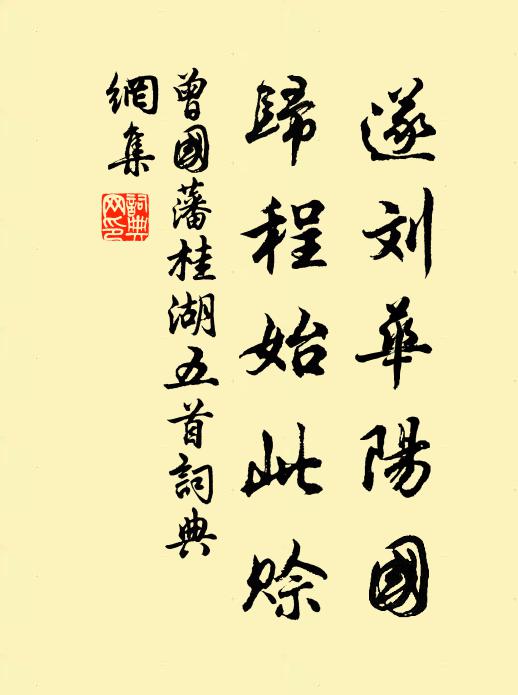 遂别華陽國
歸程始此賒
曾國藩桂湖五首詞典
網集
詞典
网印